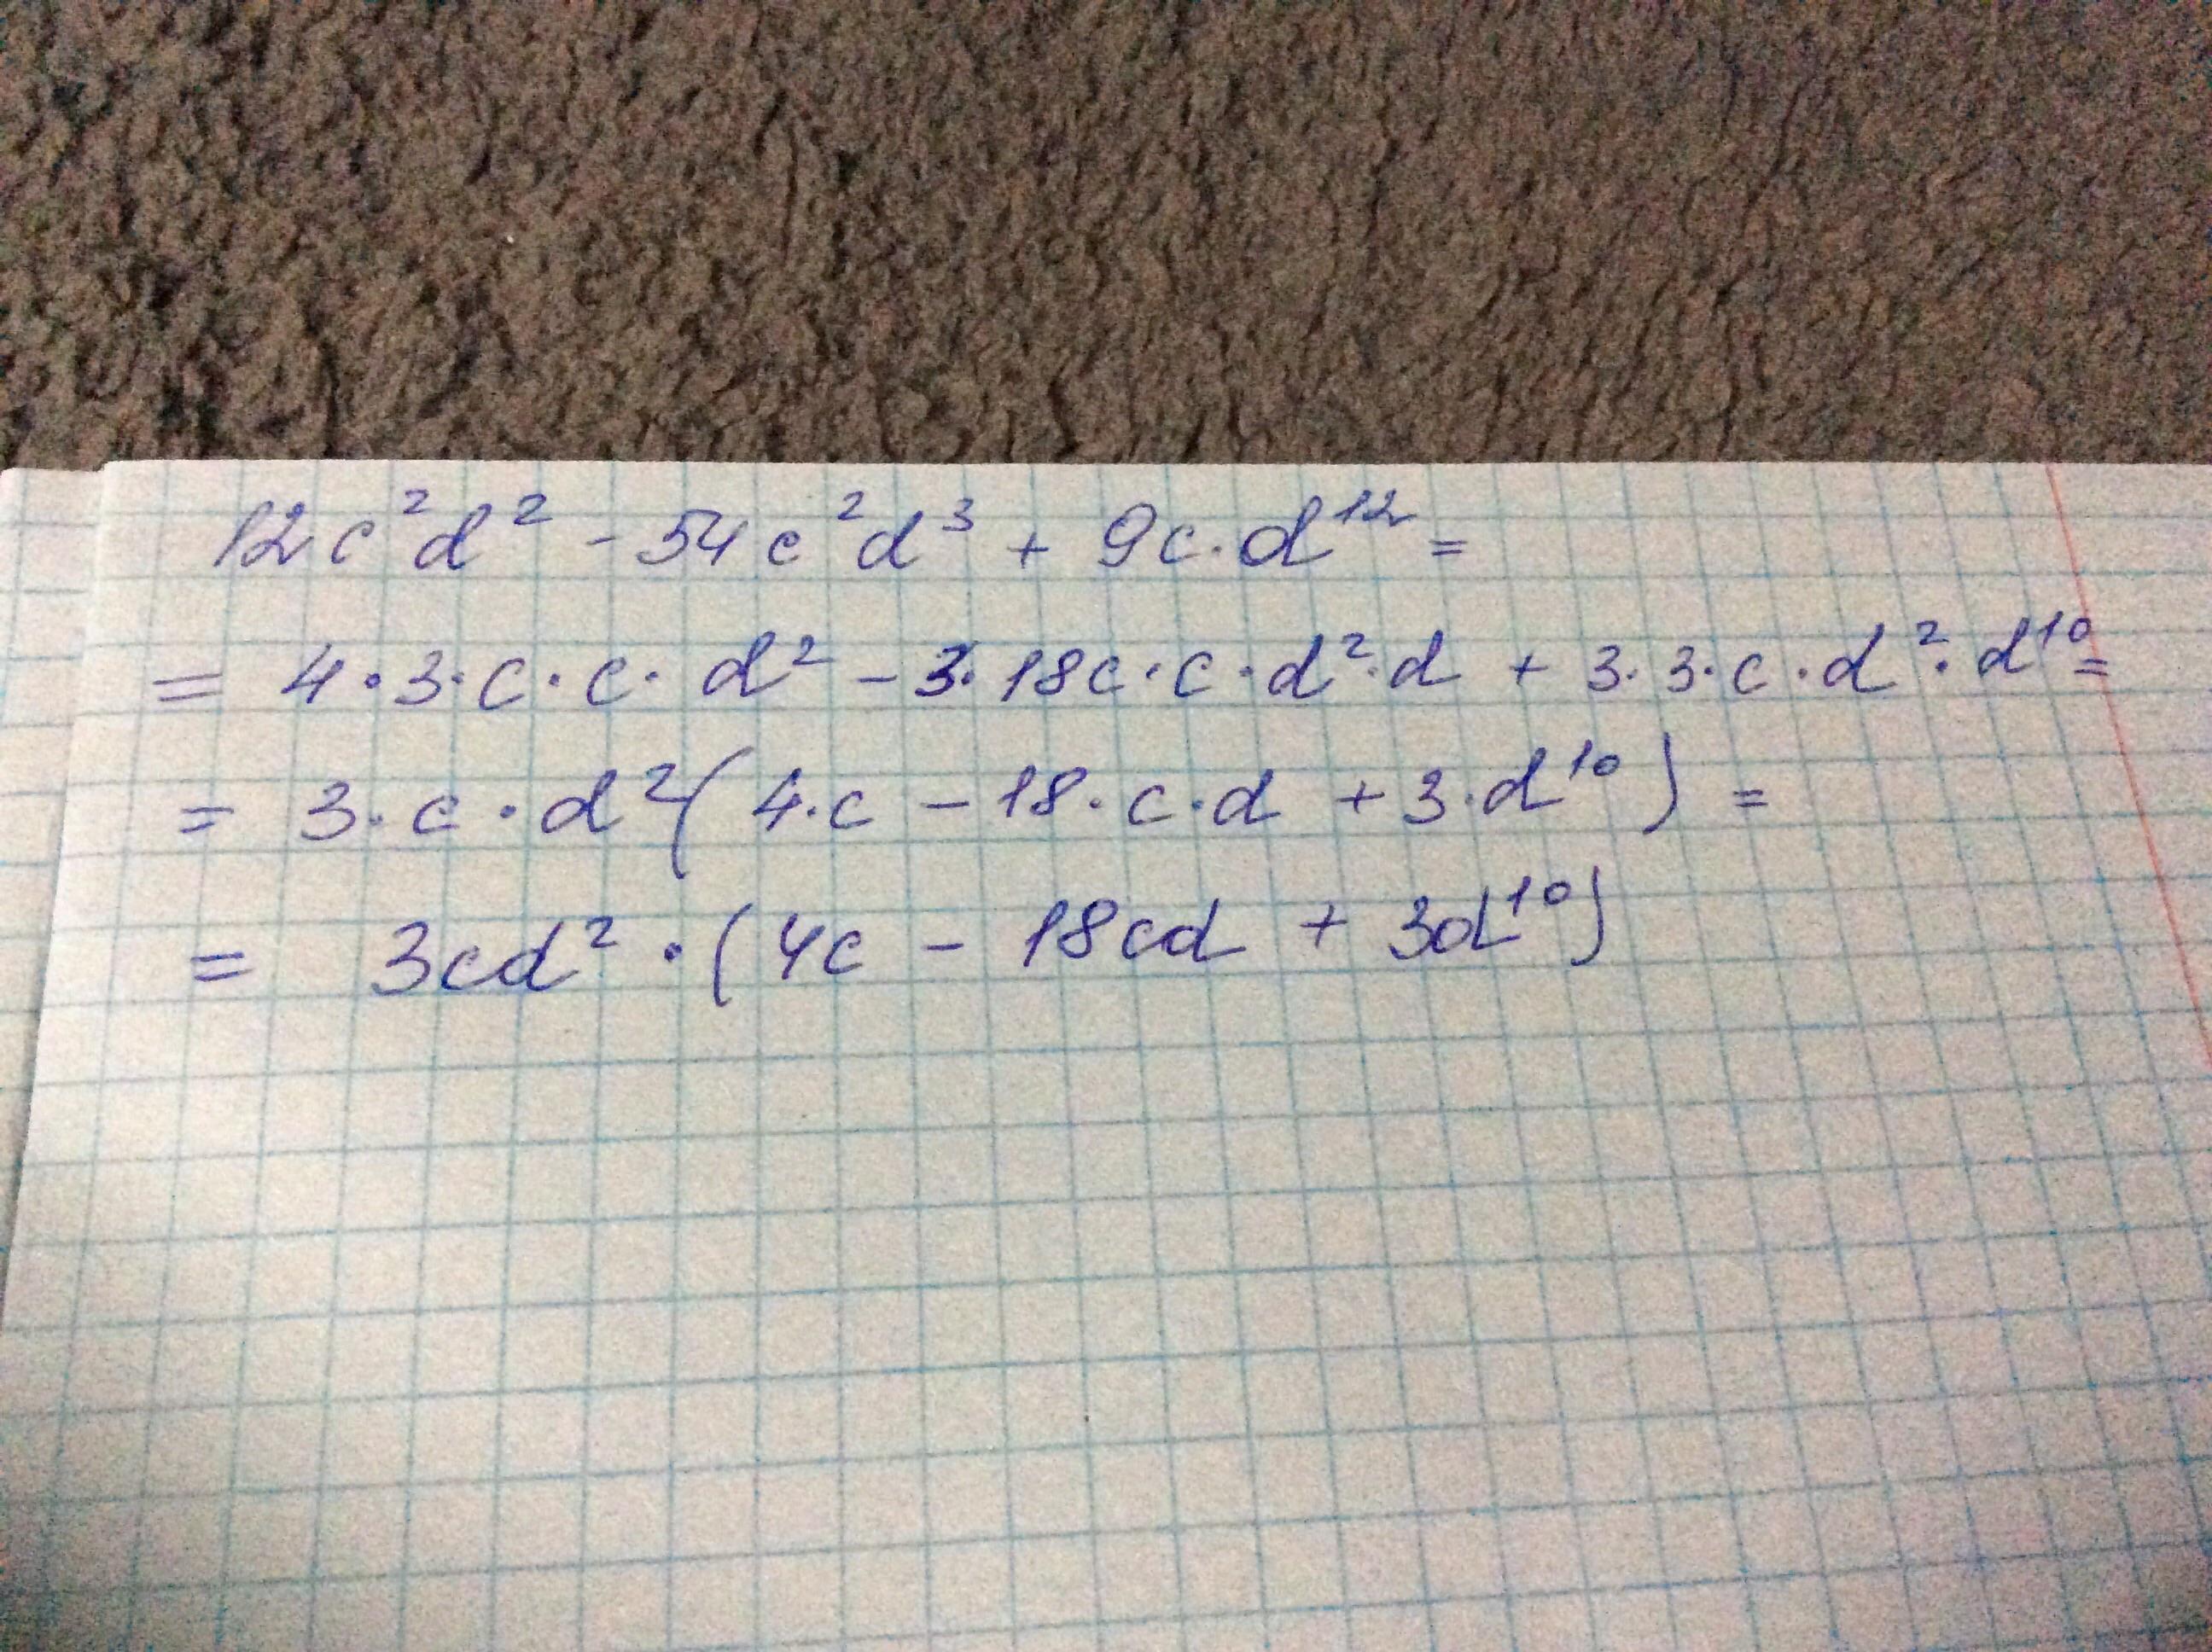 12c²d² - 54c²d³ + 9c·d¹² =
= 4·3·c·c·d² - 3·18c·c·d²·d + 3·3·c·d²·d¹⁰ =
= 3·c·d²(4·c - 18·c·d + 3·d¹⁰) =
= 3cd²·(4c - 18cd + 3d¹⁰)